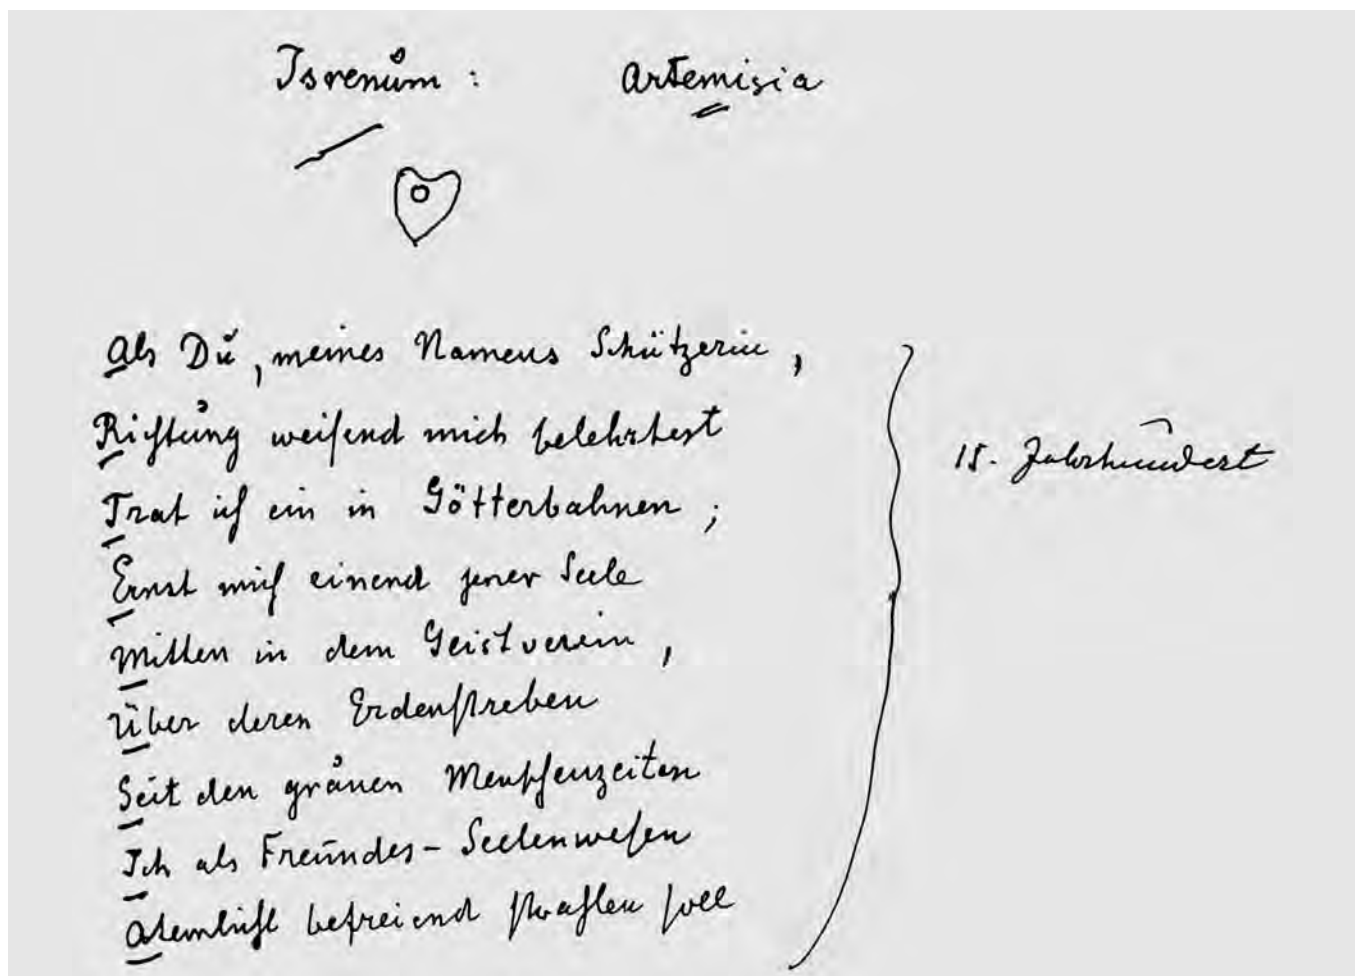 Isrenum: Artemisia
Als Du, meines Namens Schützerin,
Richtung weisend mich belehrtest
Trat ich ein in Götterbahnen;
Ernst mich einend jener Seele
15. Jahrhundert
Mitten in dem Geistverein,
Über deren Erdenstreben
Seit den grauen Menschenzeiten
Ich als Freundes-Seelenwesen
befreiend strahlen soll